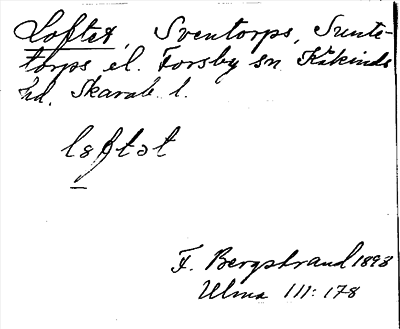 Loftet, Sventorps, Sunte-
torps el. Forsby sn Kåkinds
hd. Skarab. l.
lɞftət
F. Bergstrand 1893
Ulma 111: 178